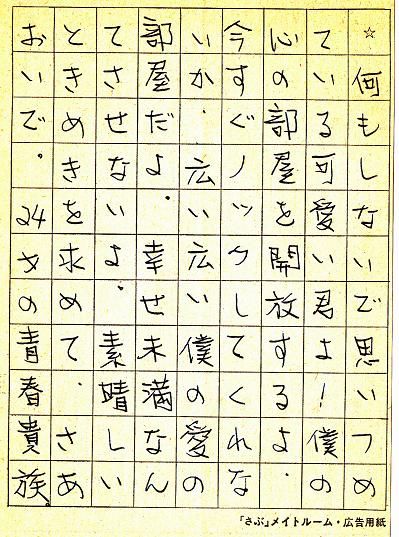 ☆何もしないで思いつめ
ている可愛い君よ!僕の
心の部屋を開放するよ.
今すぐノックしてくれな
いか.広い広い僕の愛の
部屋だよ.幸せ未満なん
てさせないよ.素靖しい
ときめきを求めて.さあ
おいで.24才の青春貴族。
「さぶ」メイトルーム・広告用紙